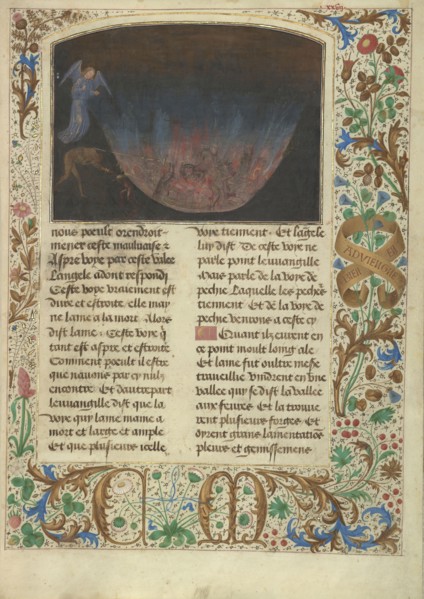 nous pœult orendroit
mener ceste mauluaise &
Aspre voye par ceste valee
Langele adont respondi
Ceste voye vraiement est
dure et estroite elle may
ne lame a la mort. Alors
dist lame: Ceste voye q̃
tant est aspre et estroite
Comment pœult il estre
que nauons par cy nulz
encontre Et dautrepart
leuuangille dist que la
voye quy lame maine a
mort et large et ample
Et que plusieurs icelle
voye tiennent. Et langele
luy dist De ceste voye ne
parle point leuuangille
Mais parle de la voye de
pechie Laquelle les pechrs
tiennent Et de la voye de
pechie venrons a ceste cy
Quant ilz eurent en
ce point moult loing ale
Et lame fut oultre mesre
trauellie vindrent en vne
vallee quy se dist la vallee
aux feures Et la trouue
rent plusieurs forges Et
oyrent grans lamentatiõs
pleurs et gemissemens
ADVIENGNE
C M